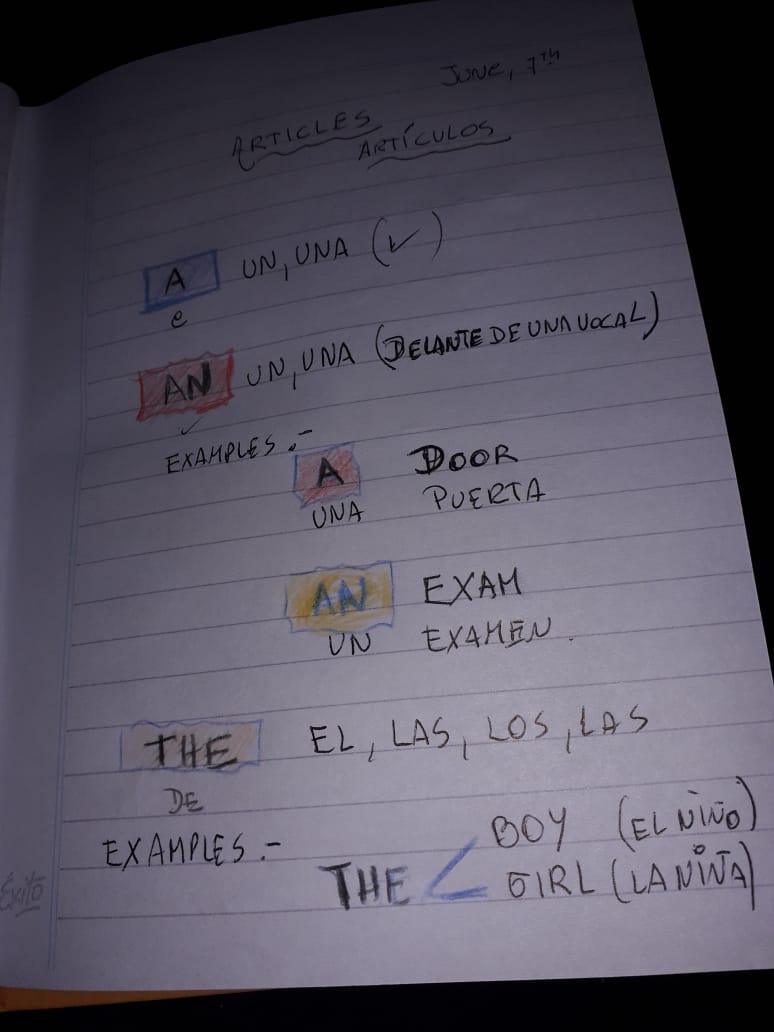 JUNE, 7TH
ARTICLES
ARTÍCULOS
A UN, UNA (✓)
e
AN UN, UNA (DELANTE DE UNA VOCAL)
EXAMPLES.-
A DOOR
UNA PUERTA
AN EXAM
UN EXAMEN.
THE EL, LAS, LOS, LAS
DE
EXAMPLES.-
BOY (EL NIÑO)
THE
GIRL (LA NIÑA)
Éxito